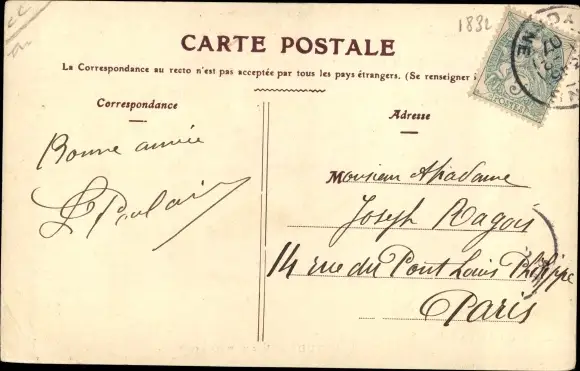 1832
CARTE POSTALE
La Correspondance au recto n'est pas acceptée par tous les pays étrangers. (Se renseigner
Correspondance
Bonne année
L Poulain
Adresse
Monsieur Madame
Joseph Ragois
14 rue du Pont Louis Philippe
Paris
POSTES